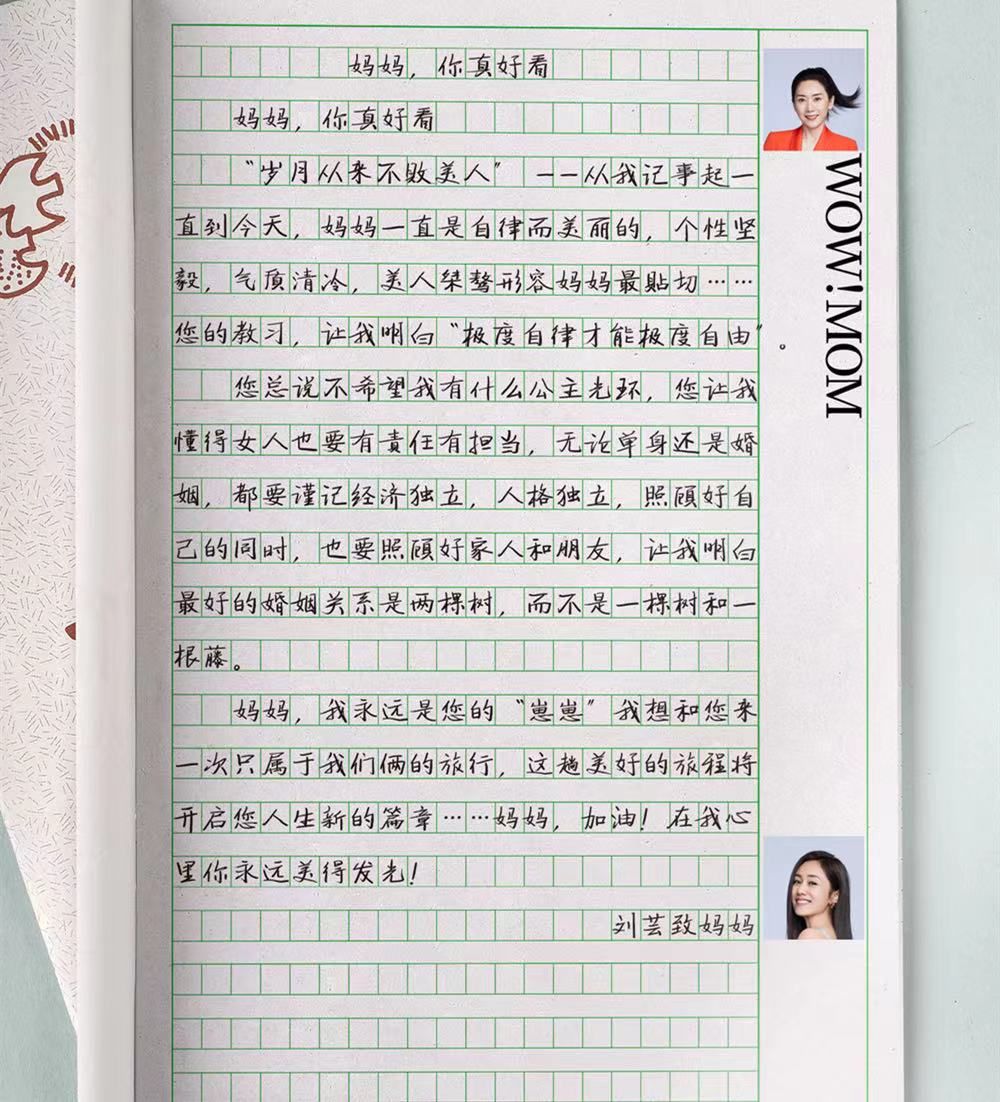 妈妈，你真好看
妈妈，你真好看
“岁月从来不败美人” ——从我记事起一
直到今天，妈妈一直是自律而美丽的，个性坚
毅，气质清冷，美人桀骜形容妈妈最贴切……
您的教习，让我明白“极度自律才能极度自由”。
您总说不希望我有什么公主光环，您让我
懂得女人也要有责任有担当，无论单身还是婚
姻，都要谨记经济独立，人格独立，照顾好自
己的同时，也要照顾好家人和朋友，让我明白
最好的婚姻关系是两棵树，而不是一棵树和一
根藤。
妈妈，我永远是您的“崽崽”我想和您来
一次只属于我们俩的旅行，这趟美好的旅程将
开启您人生新的篇章……妈妈，加油！在我心
里你永远美得发光！
刘芸致妈妈
WOW!MOM